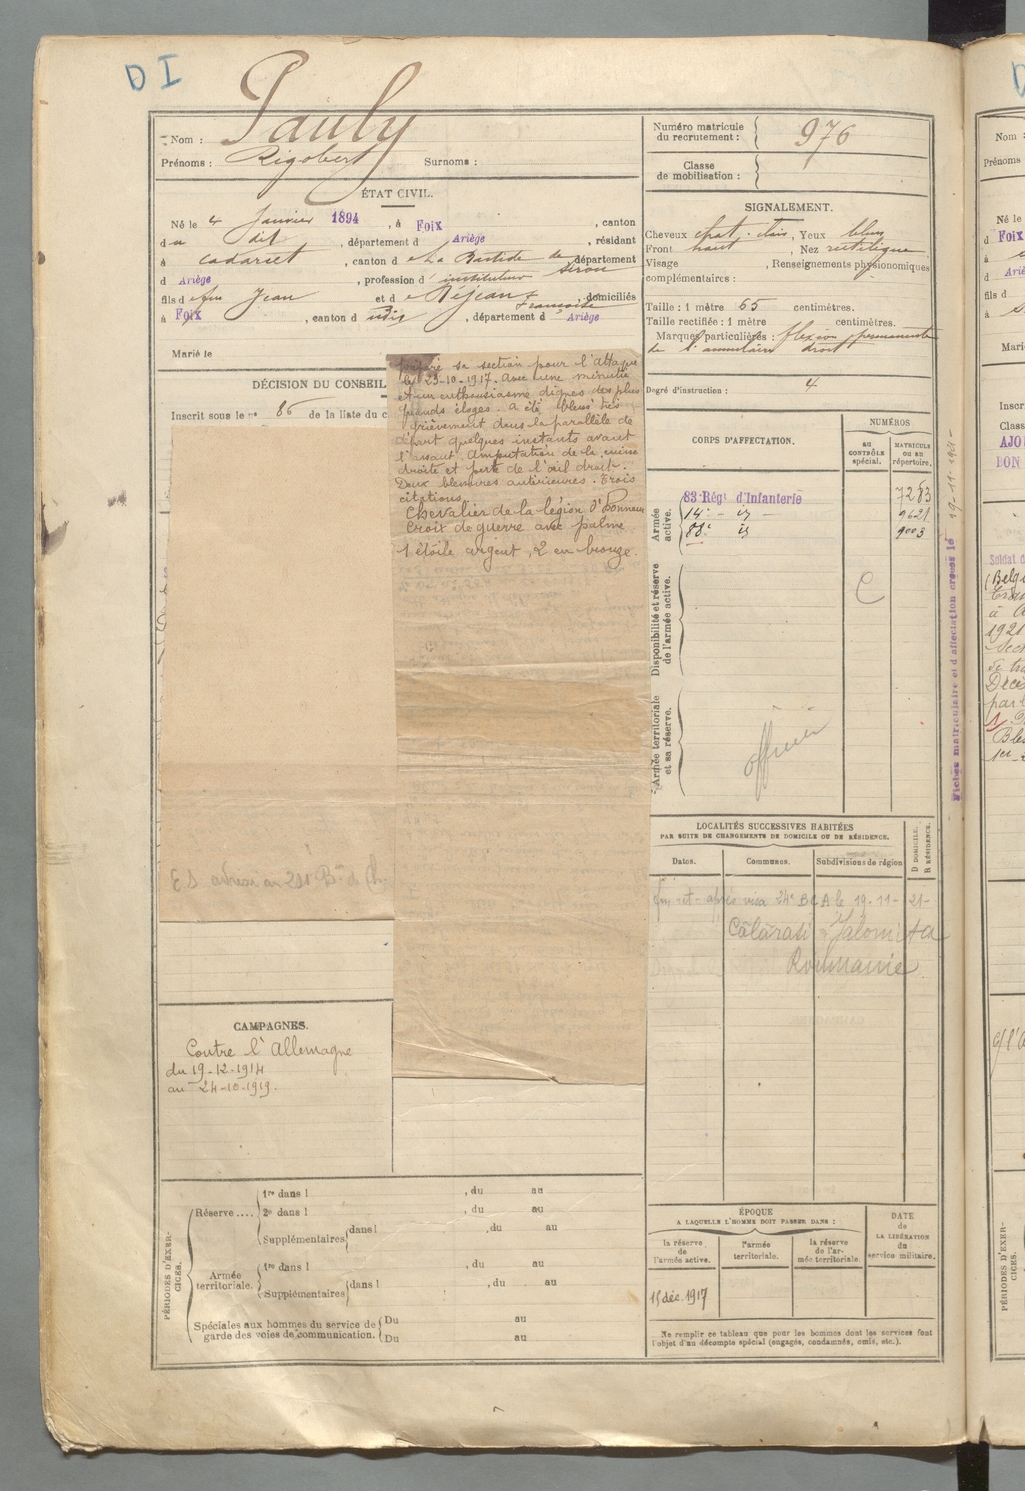 D I
Nom : Pauly
Prénoms : Rigobert Surnoms :
ÉTAT CIVIL.
Né le 4 Janvier 1894, à Foix, canton
du dit, département d Ariège, résidant
à Cadarcet, canton de La Bastide de Sérou département
d Ariège, profession d' instituteur
fils de feu Jean et de Réjean Françoise, domiciliés
à Foix, canton du dit, département d' Ariège
Marié le
DÉCISION DU CONSEIL
Inscrit sous le n° 86 de la liste du c
préparé sa section pour l'attaque
le 23-10-1917. Avec une minutie
et un enthousiasme dignes des plus
grands éloges. A été blessé très
grièvement dans la parallèle de
départ quelques instants avant
l'assaut. Amputation de la cuisse
droite et perte de l'œil droit.
Deux blessures antérieures. Trois
citations.
Chevalier de la légion d'Honneur
Croix de guerre avec palme
1 étoile argent, 2 en bronze.
CAMPAGNES.
Contre l'Allemagne
du 19-12-1914
au 24-10-1919.
PÉRIODES D'EXERCICES.
Réserve.... 1re dans l , du au
2e dans l , du au
Supplémentaires dans l , du au
Armée territoriale. 1re dans l , du au
Supplémentaires dans l , du au
Spéciales aux hommes du service de garde des voies de communication. Du au
Du au
Numéro matricule du recrutement : 976
Classe de mobilisation :
SIGNALEMENT.
Cheveux chat. clair, Yeux bleus
Front haut, Nez rectiligne
Visage , Renseignements physionomiques
complémentaires :
Taille : 1 mètre 65 centimètres.
Taille rectifiée : 1 mètre centimètres.
Marques particulières : flexion permanente
de l'annulaire droit
Degré d'instruction : 4
CORPS D'AFFECTATION.
NUMÉROS
AU CONTRÔLE spécial.
MATRICULE OU AU répertoire.
Armée active.
83 Régt d'Infanterie 7283
14e - id - 9621
88e id 9003
Disponibilité et réserve de l'armée active.
Armée territoriale et sa réserve.
officier
Fiches matriculaire et d'affectation créées le 19-11-1921-
LOCALITÉS SUCCESSIVES HABITÉES
PAR SUITE DE CHANGEMENTS DE DOMICILE OU DE RÉSIDENCE.
Dates. Communes. Subdivisions de région D DOMICILE. R RÉSIDENCE.
après visa 24e BCA le 19-11-21-
Călărasi Jalomita
Roumanie
ÉPOQUE
A LAQUELLE L'HOMME DOIT PASSER DANS :
la réserve de l'armée active. l'armée territoriale. la réserve de l'armée territoriale.
DATE de LA LIBÉRATION du service militaire.
15 déc. 1917
Ne remplir ce tableau que pour les hommes dont les services font
l'objet d'un décompte spécial (engagés, condamnés, omis, etc.).